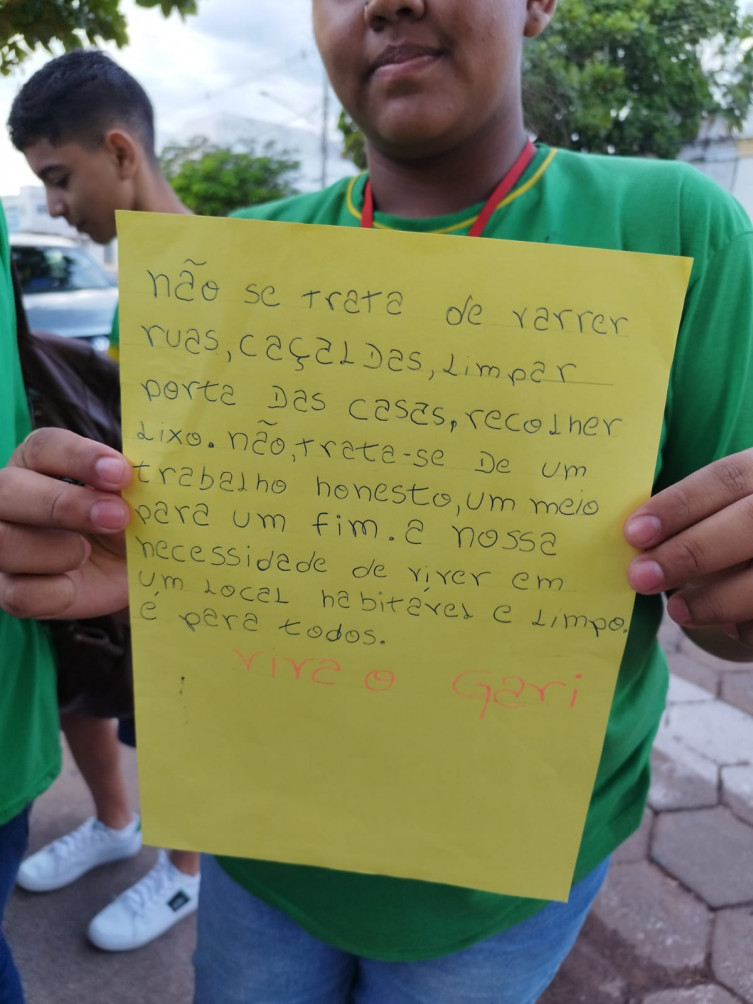 não se trata de varrer
ruas, caçaldas, limpar
porta das casas, recolher
lixo. não, trata-se De um
trabalho honesto, um meio
para um fim. a nossa
necessidade de viver em
um local habitável e limpo.
é para todos.
viva o Gari